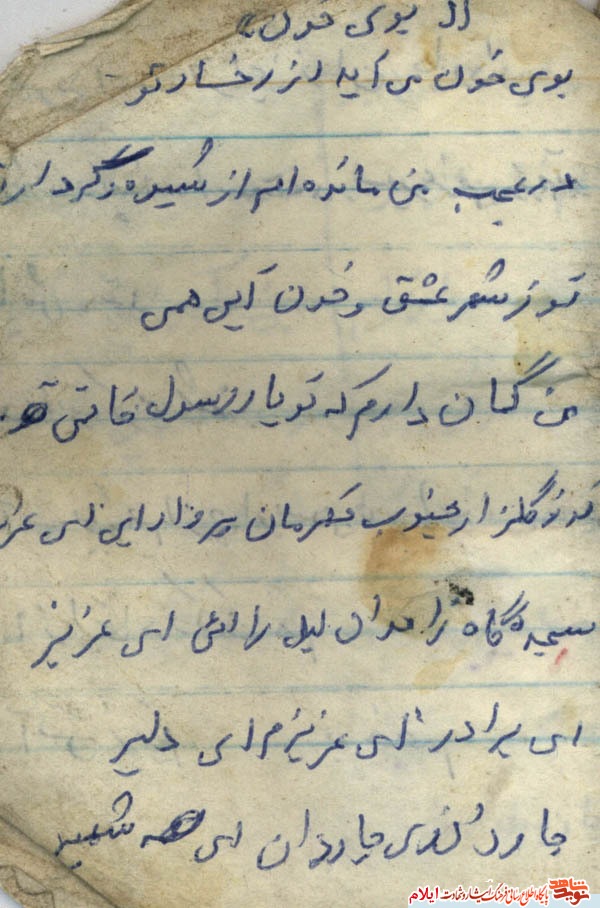 (( بوی خون ))
بوی خون می آید از رخسار تو
در عجب من مانده ام از شیوه و کردار
تو ز شهر عشق و خون آیی همی
من گمان دارم که تو یار رسول خاتمی
گلزار جنوب کهرمان پرواز ای
سجدگاه را ای عزیز
ای برادر ای عزیزم ای دلیر
جاودان ای شهید
نوید شاهد
پایگاه اطلاع رسانی فرهنگ ایثار و شهادت ایلام